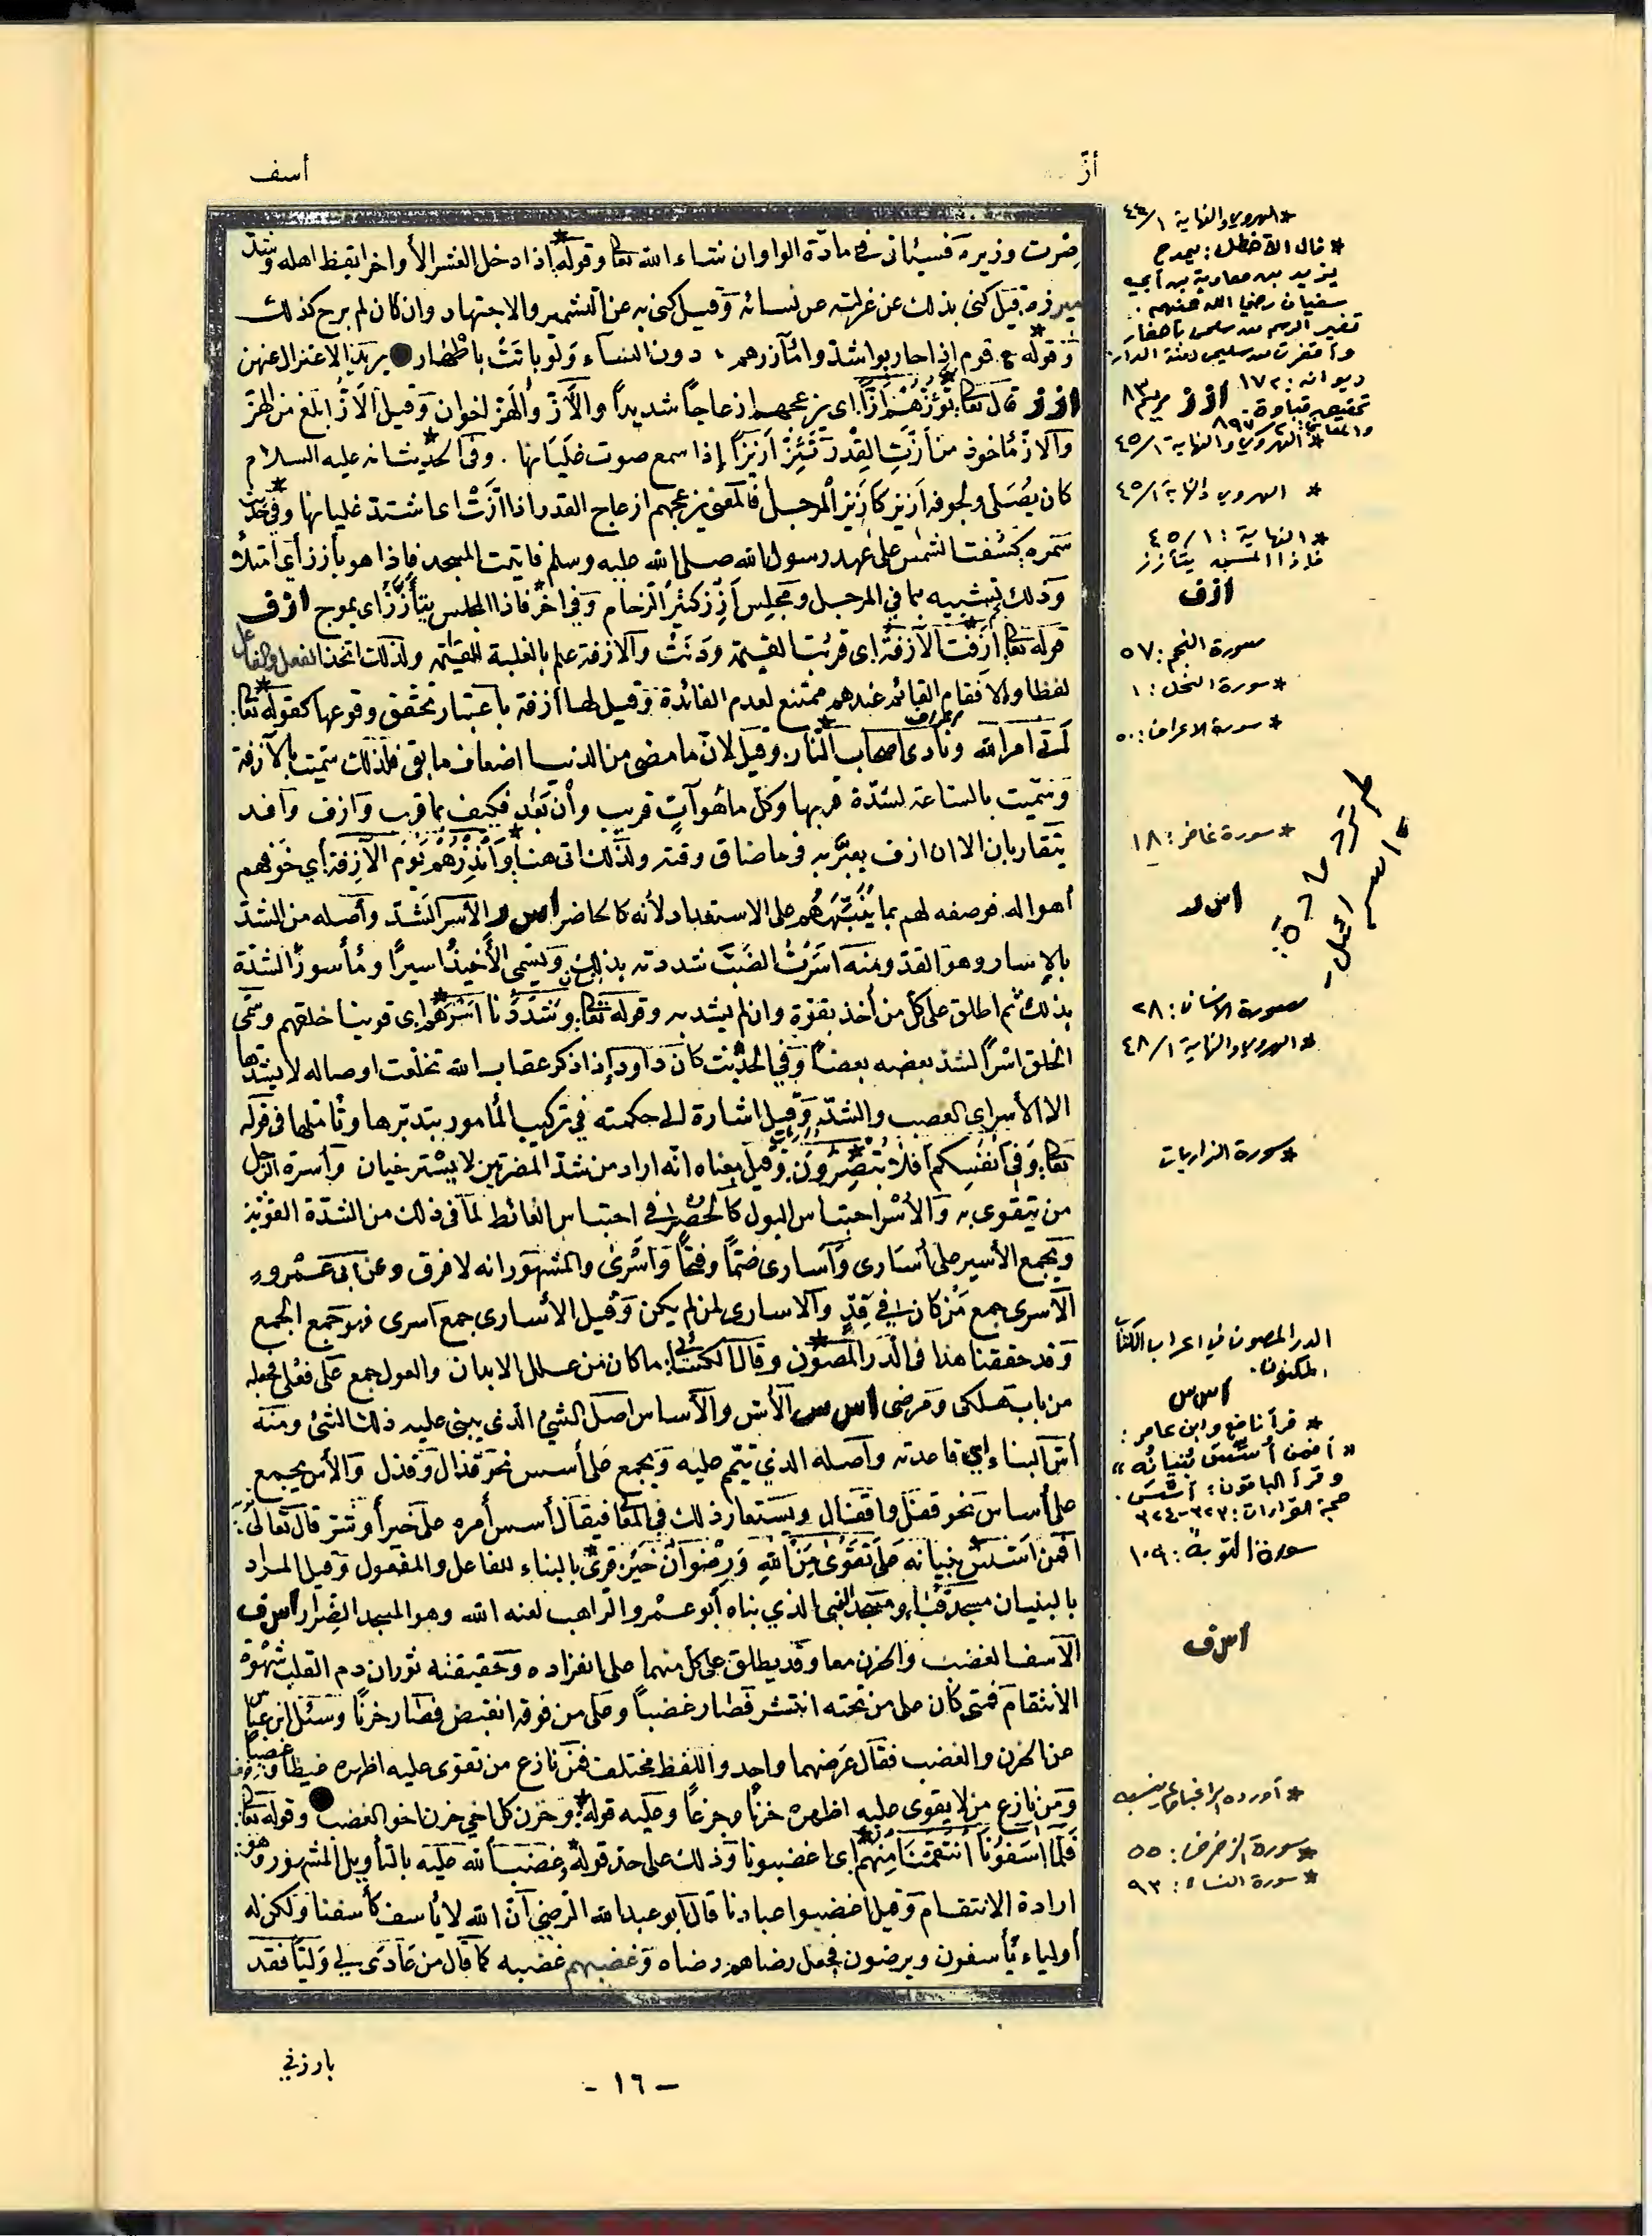 أزّ
أسف
صرت وزيره فسيأتي في مادّة الواو ان شاء الله تعا وقوله اذا دخل العشر الأواخر ايقظ اهله وشدّ
ميزره قيل كنى بذلك عن عزلته عن نسائه وقيل كنى به عن التشمير والاجتهاد وان كان لم برح كذلك
وقوله ع قوم اذا حاربوا شدّوا مآزرهم ، دون النساء ولو باتت باطهار يريد الاعتزال عنهن
ازز قال تعا تؤزّهم أزّا اى يزعجهم ازعاجاً شديداً والأزّ والهز اخوان وقيل الأزّ ابلغ من الهزّ
والازّ مأخوذ من أزّت القدر تئزّ أزيزاً إذا سمع صوت غليانها . وفى الحديث انه عليه السلام
كان يصلى ولجوفه أزيز كأزيز المرجل فالمعنى يزعجهم ازعاج القدر اذا ازّت اى اشتد غليانها وفي حديث
سمره كسفت الشمس على عهد رسول الله صلى الله عليه وسلم فاتيت المسجد فاذا هو بأزز أي امتلأ
وذلك تشبيه بما في المرجل ومجلس أزز كثير الزحام وفي اخر فاذا المجلس يتأزز اى يموج ازف
قوله تعا ازفت الآزفة اى قربت القيمة ودنت والازفة علم بالغلبة للقيمة ولذلك اتخذ الفعل والفاعل
لفظا والا فقام القائم عندهم ممتنع لعدم الفائدة وقيل لها آزفة باعتبار تحقق وقوعها كقوله تعا
أتى امر الله ونادى اصحاب النار وقيل لانّ ما مضى من الدنيا اضعاف ما بقى فلذلك سميت بالآزفة
وسميت بالساعة لشدّة قربها وكل ما هو آتٍ قريب وأن بعد فكيف بما قرب وازف وافد
يتقاربان الا ان ازف يعبّر به فى ما ضاق وقته ولذلك اتى هنا وأنذرهم يوم الآزفة أي خوفهم
أهواله فوصفه لهم بما ينبّههم على الاستعداد لأنه كالحاضر اس ر الأسر الشدّ وأصله من الشد
بالإسار وهو القد ومنه اسرت القتب شددته بذلك ويسمى الأخيذ اسيراً ومأسوراً لشدة
بذلك ثم اطلق على كل من أخذ بقوّة وان لم يشد به وقوله تعا وشددنا اسرهم اى قوينا خلقهم وسمّى
الخلق اسراً لشد بعضه بعضاً وفي الحديث كان داود إذا ذكر عقاب الله تخلعت اوصاله لا يشدها
الا الأسر اى العصب والشدّ وقيل اشارة الى حكمته في تركيب المأمور بتدبّرها وتأملها فى قوله
تعا وفى أنفسكم أفلا تبصرون وقيل معناه انّه اراد من شدّ المصرتين لا يسترخيان وأسرة الرجل
من يتقوى به والأسر احتباس البول كالحصر فى احتباس الغائط لما فى ذلك من الشدّة القوية
ويجمع الأسير على أسارى وأسارى ضمّاً وفتحاً وأسرى والمشهور انه لا فرق وعن ابى عمرو
الأسرى جمع من كان في قدّ والاسارى لمن لم يكن وقيل الأسارى جمع أسرى فهو جمع الجمع
وقد حققنا هذا فى الدر المصون وقال الكسائي ما كان من علل الابدان والعول جمع على فعلى فجعله
من باب هلكى ومرضى اس س الأسّ والأساس اصل الشيء الذى يبنى عليه ذلك الشئ ومنه
أسّ البناء اي قاعدته وأصله الذي يتم عليه ويجمع على أسس نحو قذال وقذل والأس يجمع
على أساس نحو قفل واقفال ويستعار ذلك في المعا فيقال أسس أمره على خير أو شر قال تعالى
افمن اسّس بنيانه على تقوى من الله ورضوان خير قرئ بالبناء للفاعل والمفعول وقيل المراد
بالبنيان مسجد قبا ومسجد النبى الذي بناه أبو عمرو الراهب لعنه الله وهو المسجد الضرار اس ف
الأسف الغضب والحزن معا وقد يطلق على كل منهما على انفراده وحقيقته ثوران دم القلب شهوة
الانتقام فمتى كان على من تحته انتشر فصار غضباً وعلى من فوقه انقبض فصار حزناً وسئل ابن عباس
عن الحزن والغضب فقال غرضهما واحد واللفظ مختلف فمن نازع من تقوى عليه اظهره غيظا وغضبا
ومن نازع من لا يقوى عليه اظهره حزناً وجزعاً وعليه قوله وحزن كل اخي حزن اخو الغضب وقوله تعا
فلما اسفونا انتقمنا منهم اى اغضبونا وذلك على حد قوله وغضب الله عليه بالتأويل المشهور وهو
ارادة الانتقام وقيل اغضبوا عبادنا قال ابو عبدالله الرضى أنّ الله لا يأسف كأسفنا ولكن له
أولياء يأسفون ويرضون فجعل رضاهم رضاه وغضبهم غضبه كما قال من عادى لي وليّا فقد
* الهروي والنهاية ١/٤٤
* قال الأخطل : يمدح
يزيد بن معاوية بن أبي
سفيان رضي الله عنهم .
تغير الرسم من سلمى بأحفار
وأقفرت من سليمى دمنة الدار
ديوانه : ١٧٢
ازز مريم ٨٣
* الهروي والنهاية ١/٤٥
* الهروي والنهاية ١/٤٥
* النهاية : ١/٤٥
فإذا المسجد يتأزز
ازف
سورة النجم : ٥٧
* سورة النحل : ١
* سورة الاعراف : ٥٠
* سورة غافر : ١٨
اس ر
سورة الانسان : ٢٨
* الهروي والنهاية ١/٤٨
* سورة الذاريات
الدر المصون في اعراب الكتاب
المكنون .
اس س
* قرأ نافع وابن عامر :
« أفمن أُسِّسَ بُنيانُه »
وقرأ الباقون : أَسَّسَ .
حجة القراءات : ٣٢٣-٣٢٤
سورة التوبة : ١٠٩
اس ف
* سورة الزخرف : ٥٥
* سورة النساء : ٩٣
بارزني
- ١٦ -